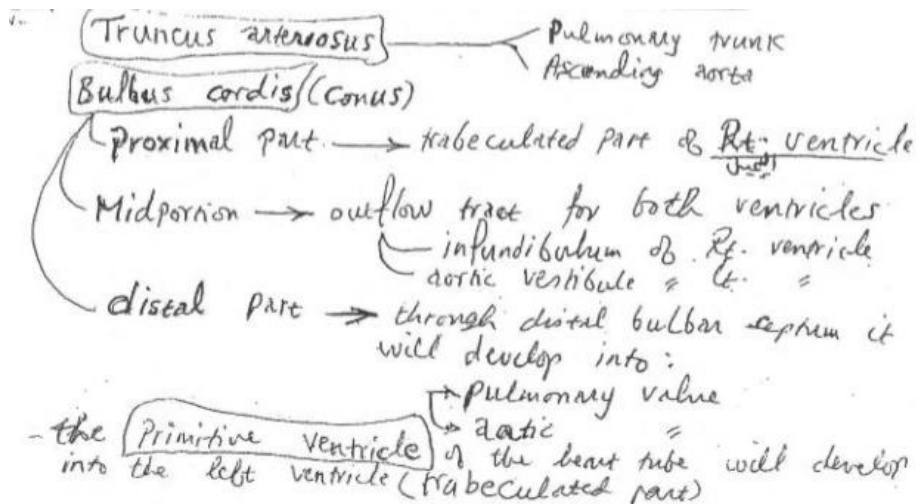 Truncus arteriosus Pulmonary trunk
Ascending aorta
Bulbus cordis (Conus)
proximal part → trabeculated part of Rt. ventricle
Midportion → outflow tract for both ventricles
infundibulum of Rt. ventricle
aortic vestibule " lt. "
distal part → through distal bulbar septum it
will develop into:
pulmonary value
aotic "
- the Primitive ventricle of the heart tube will develop
into the left ventricle (trabeculated part)